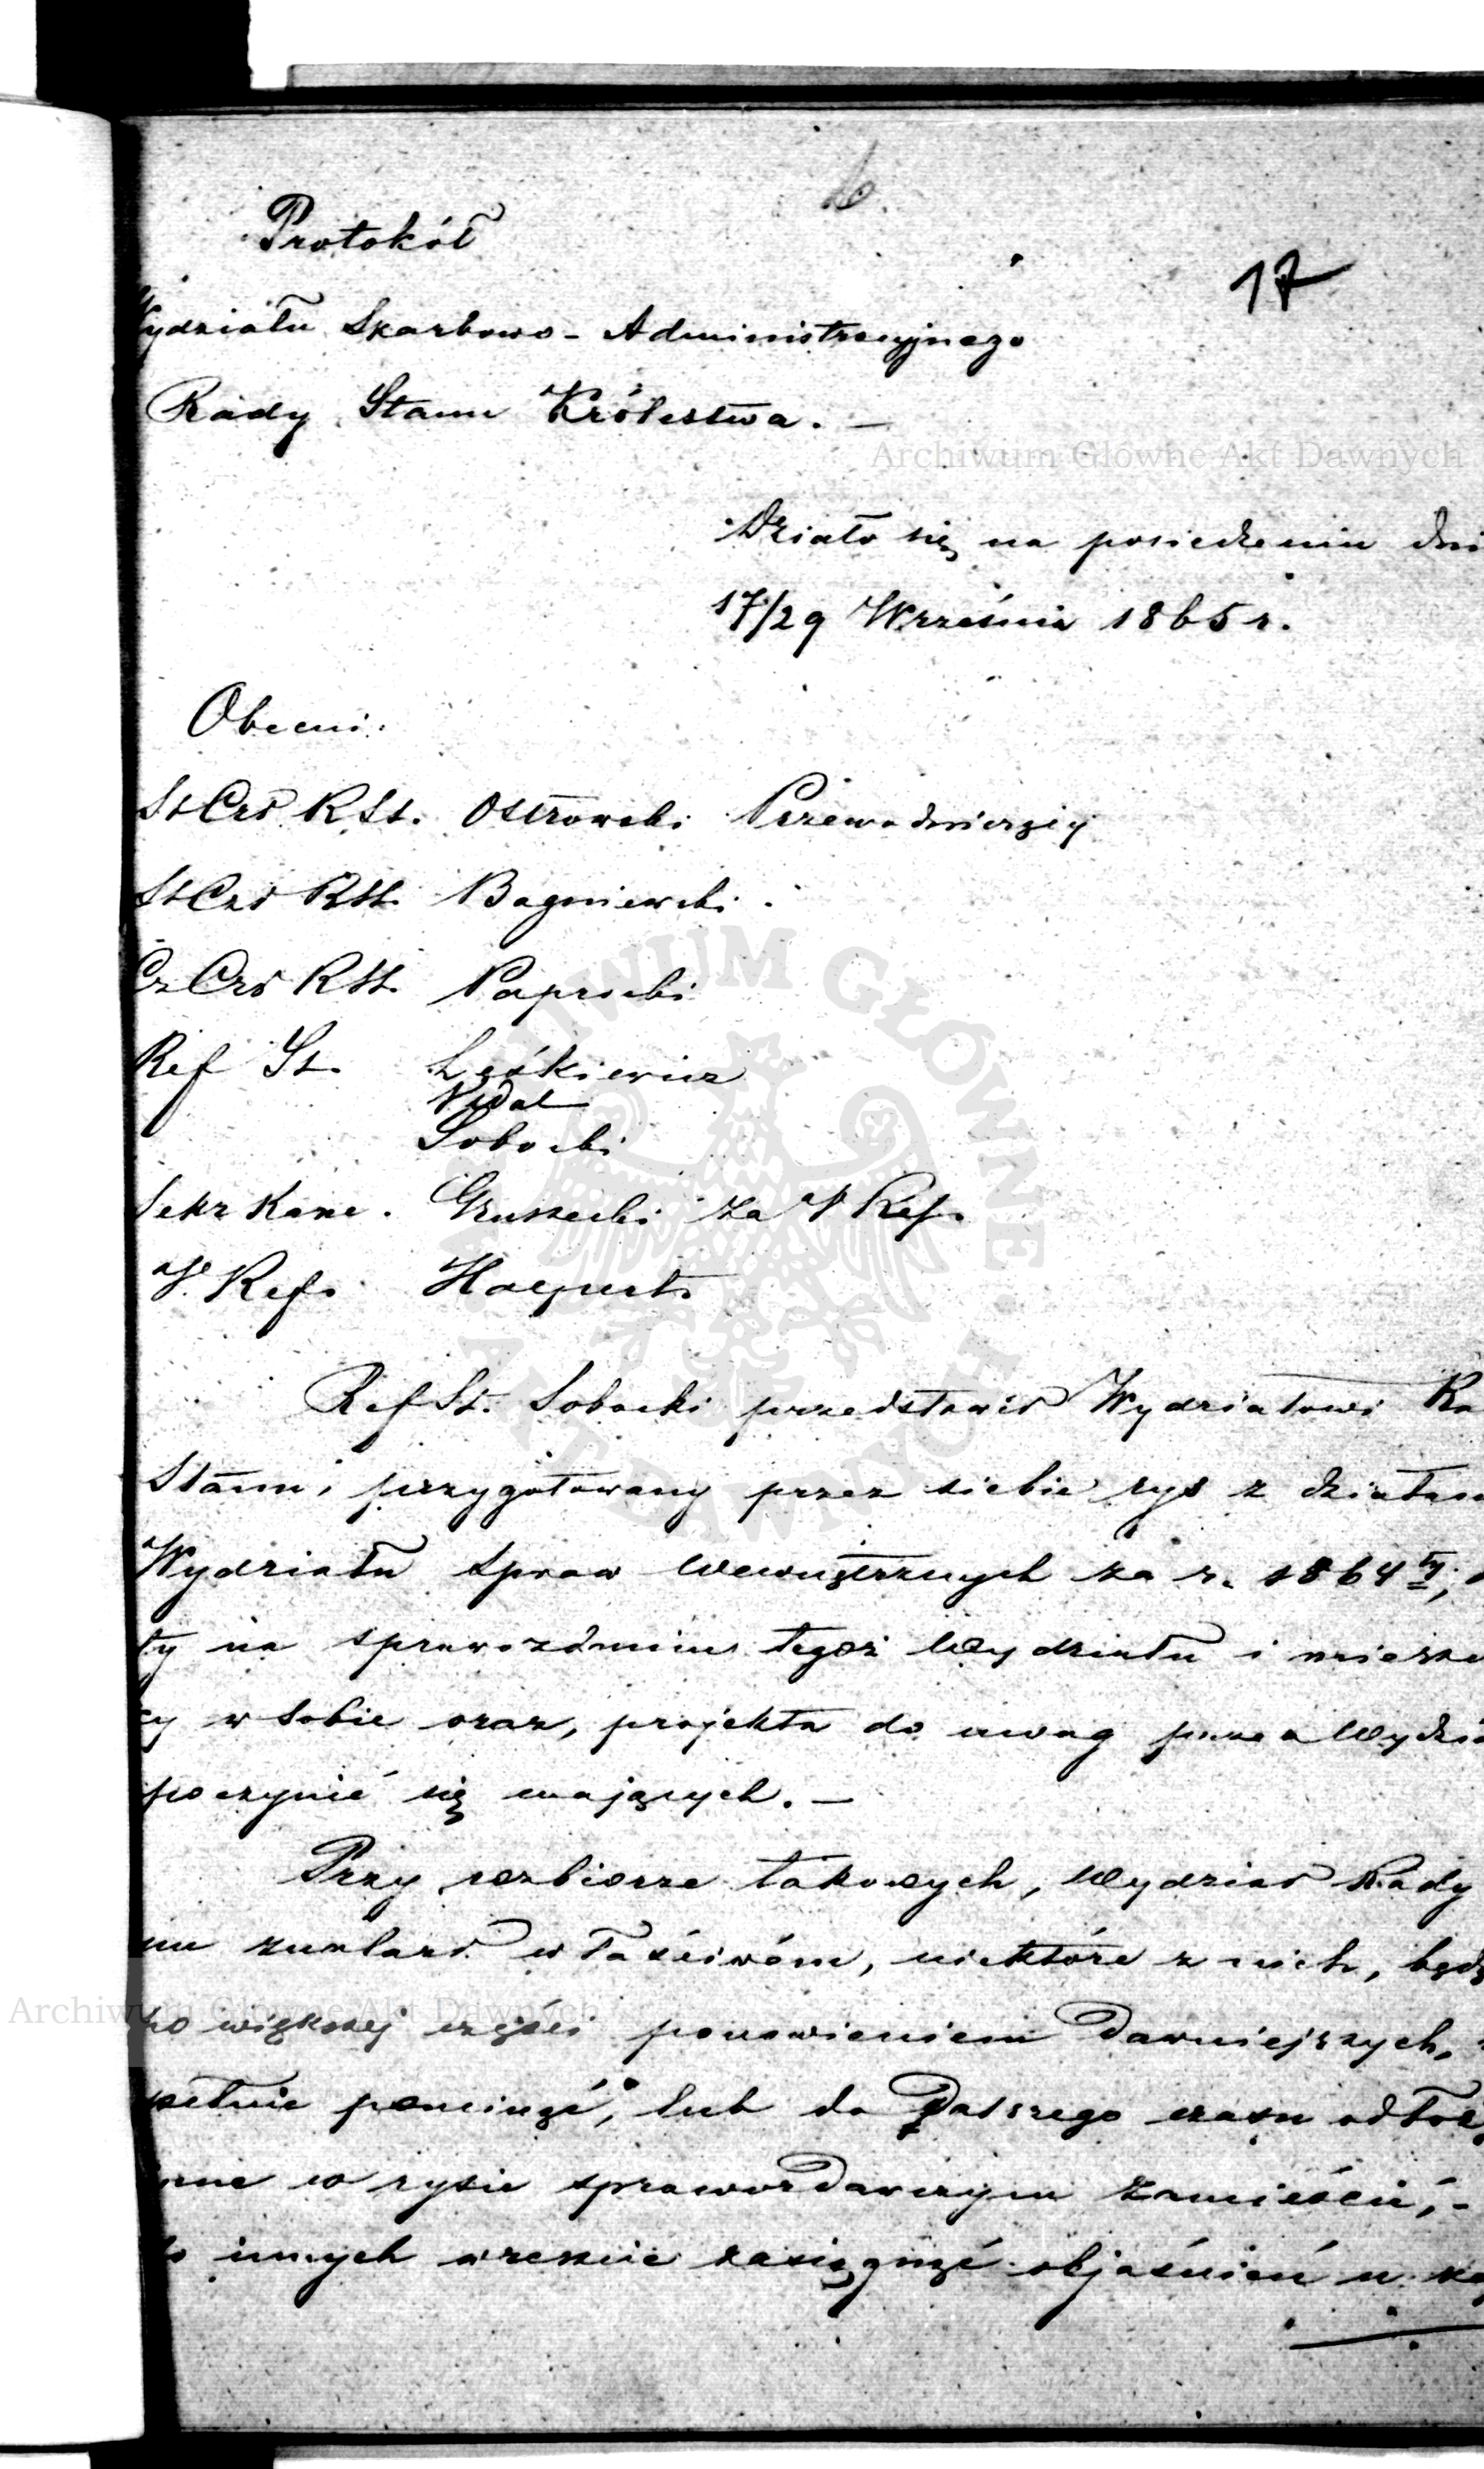 6.
17
Protokół
Wydziału Skarbowo-Administracyjnego
Rady Stanu Królestwa. —
Archiwum Główne Akt Dawnych
Działo się na posiedzeniu dni
17/29 Września 1865 r.
Obecni:
St Czł R St. Ostrowski Przewodniczący
St Czł R St. Bagniewski.
Cz Czł R St. Paprocki
Ref St. Leśkiewicz
Vidal
Sobocki
Sekr Kanc. Gruszecki za V Ref.
V. Ref. Halpert
ARCHIWUM GŁÓWNE AKT DAWNYCH
Ref St. Sobocki przedstawił Wydziałowi Ra
Stanu, przygotowany przez siebie rys z działan
Wydziału Spraw Wewnętrznych za r. 1864 ty,
ty na sprawozdaniu tegoż Wydziału i mieszcz
cy w sobie oraz, projekta do uwag przez Wydzia
poczynić się mających. —
Przy rozbiorze takowych, Wydział Rady
nu znalazł właściwém, niektóre z nich, będą
po większej części ponowieniem dawniejszych,
pełnie pominąć, lub do dalszego czasu odłoż
inne w rysie sprawozdawczym zamieścić, -
do innych wreszcie zasięgnąć objaśnień u
Archiwum Główne Akt Dawnych